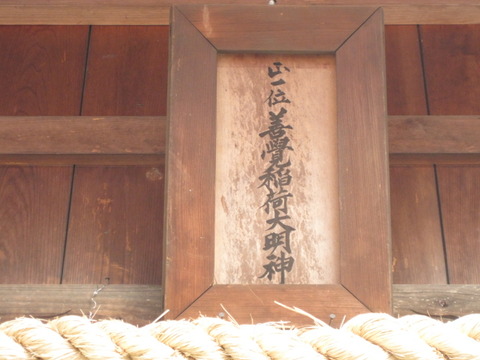 正一位善覺稲荷大明神